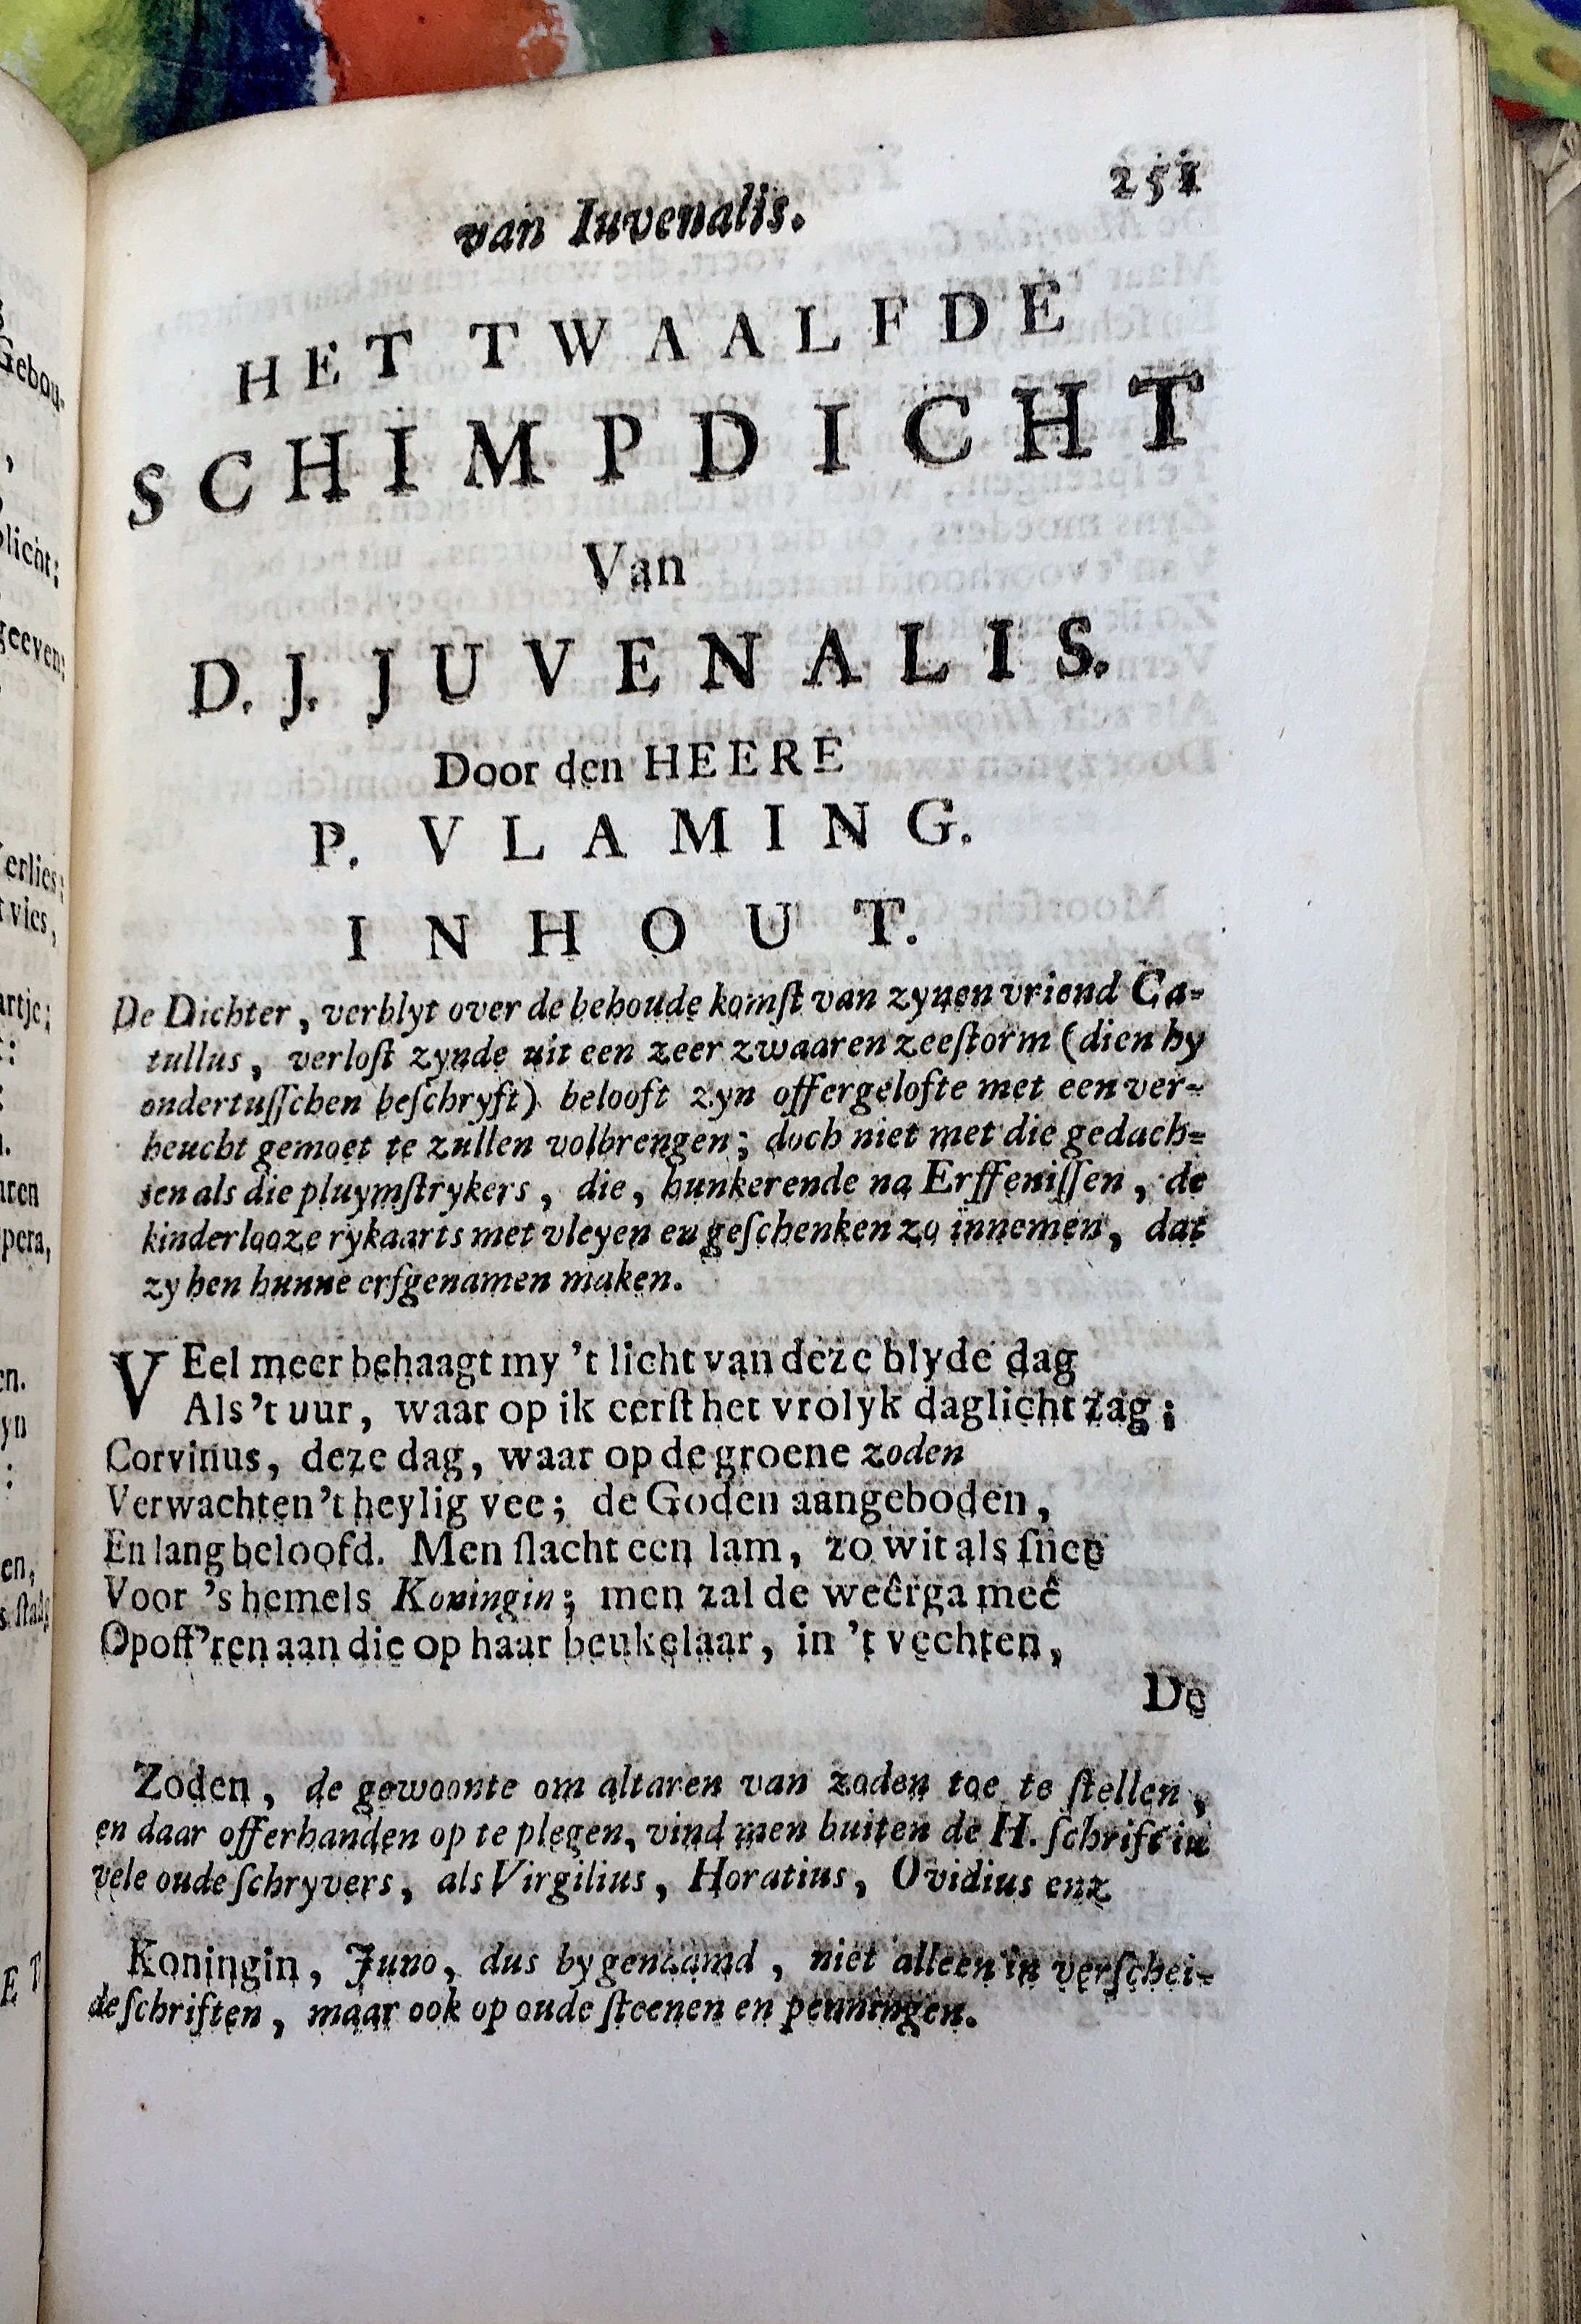 van Iuvenalis.
251
HET TWAALFDE
SCHIMPDICHT
Van
D. J. JUVENALIS.
Door den HEERE
P. VLAMING.
INHOUT.
De Dichter, verblyt over de behoude komſt van zynen vriend Ca-
tullus, verloſt zynde uit een zeer zwaaren zeeſtorm (dien hy
ondertuſſchen beſchryft) belooft zyn offergelofte met een ver-
heucht gemoet te zullen volbrengen; doch niet met die gedach-
ten als die pluymſtrykers, die, hunkerende na Erffeniſſen, de
kinderlooze rykaarts met vleyen en geſchenken zo innemen, dat
zy hen hunne erfgenamen maken.
VEel meer behaagt my 't licht van deze blyde dag
Als 't uur, waar op ik eerſt het vrolyk daglicht zag;
Corvinus, deze dag, waar op de groene zoden
Verwachten 't heylig vee; de Goden aangeboden,
En lang beloofd. Men ſlacht een lam, zo wit als ſnee
Voor 's hemels Koningin; men zal de weêrga meê
Opoff'ren aan die op haar beukelaar, in 't vechten,
De
Zoden, de gewoonte om altaren van zoden toe te ſtellen,
en daar offerhanden op te plegen, vind men buiten de H. ſchrift in
vele oude ſchryvers, als Virgilius, Horatius, Ovidius enz
Koningin, Juno, dus bygenaamd, niet alleen in verſchei-
de ſchriften, maar ook op oude ſteenen en penningen.